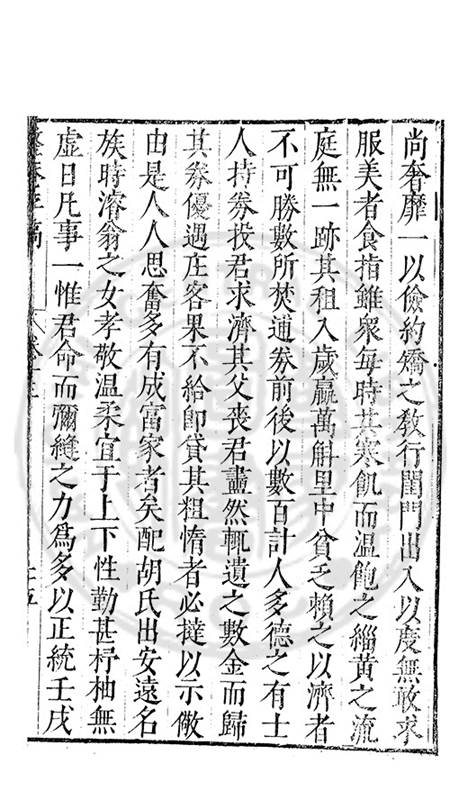 尚奢靡一以儉約矯之教行閨門出入以度無敢求
服美者食指雖衆每時其寒飢而温飽之緇黄之流
庭無一跡其租入歲贏萬斛里中貧乏賴之以濟者
不可勝數所焚逋券前後以數百計人多德之有士
人持券投君求濟其父喪君盡然輒遺之數金而歸
其券優遇庄客果不給卽貸其粗惰者必撻以示儆
由是人人思奮多有成富家者矣配胡氏出安遠名
族時濬翁之女孝敬温柔宜于上下性勤甚杼柚無
虚日凡事一惟君命而彌縫之力爲多以正統壬戌